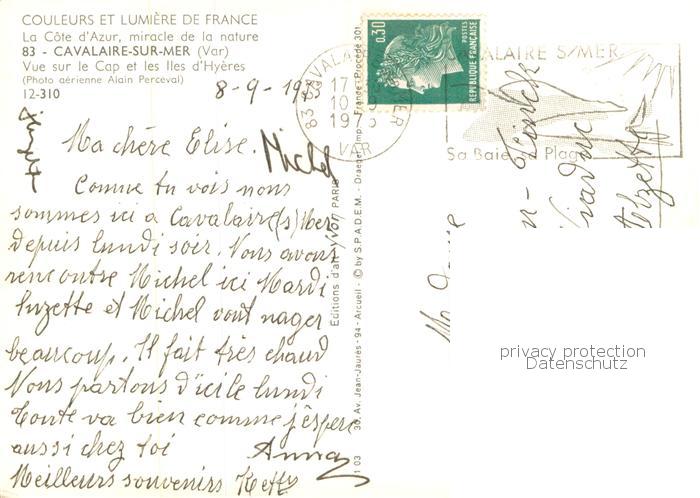 COULEURS ET LUMIÈRE DE FRANCE
La Côte d'Azur, miracle de la nature
83 - CAVALAIRE-SUR-MER (Var)
Vue sur le Cap et les Iles d'Hyères
(Photo aérienne Alain Perceval)
12-310
8-9-1973
Ma chère Elise.
Michel
Comme tu vois nous
sommes ici a Cavalaire(s)Mer
depuis lundi soir. Nous avons
rencontre Michel ici Mardi
Suzette et Michel vont nager
beaucoup. Il fait très chaud
Nous partons d'ici le lundi
Toute va bien comme j'éspere
aussi chez toi
Anna
Meilleurs souvenirs Ketty
Editions d'art YVON PARIS
30, Av. Jean-Jaurès - 94 - Arcueil - © by S.P.A.D.E.M. - Draeger, Imp. - France - Procédé 301
1 03
0.30
POSTES
REPUBLIQUE FRANÇAISE
83 CAVALAIRE S MER
17
10
VAR
CAVALAIRE S/MER
Sa Baie Sa Plage
Viaduc
privacy protection
Datenschutz